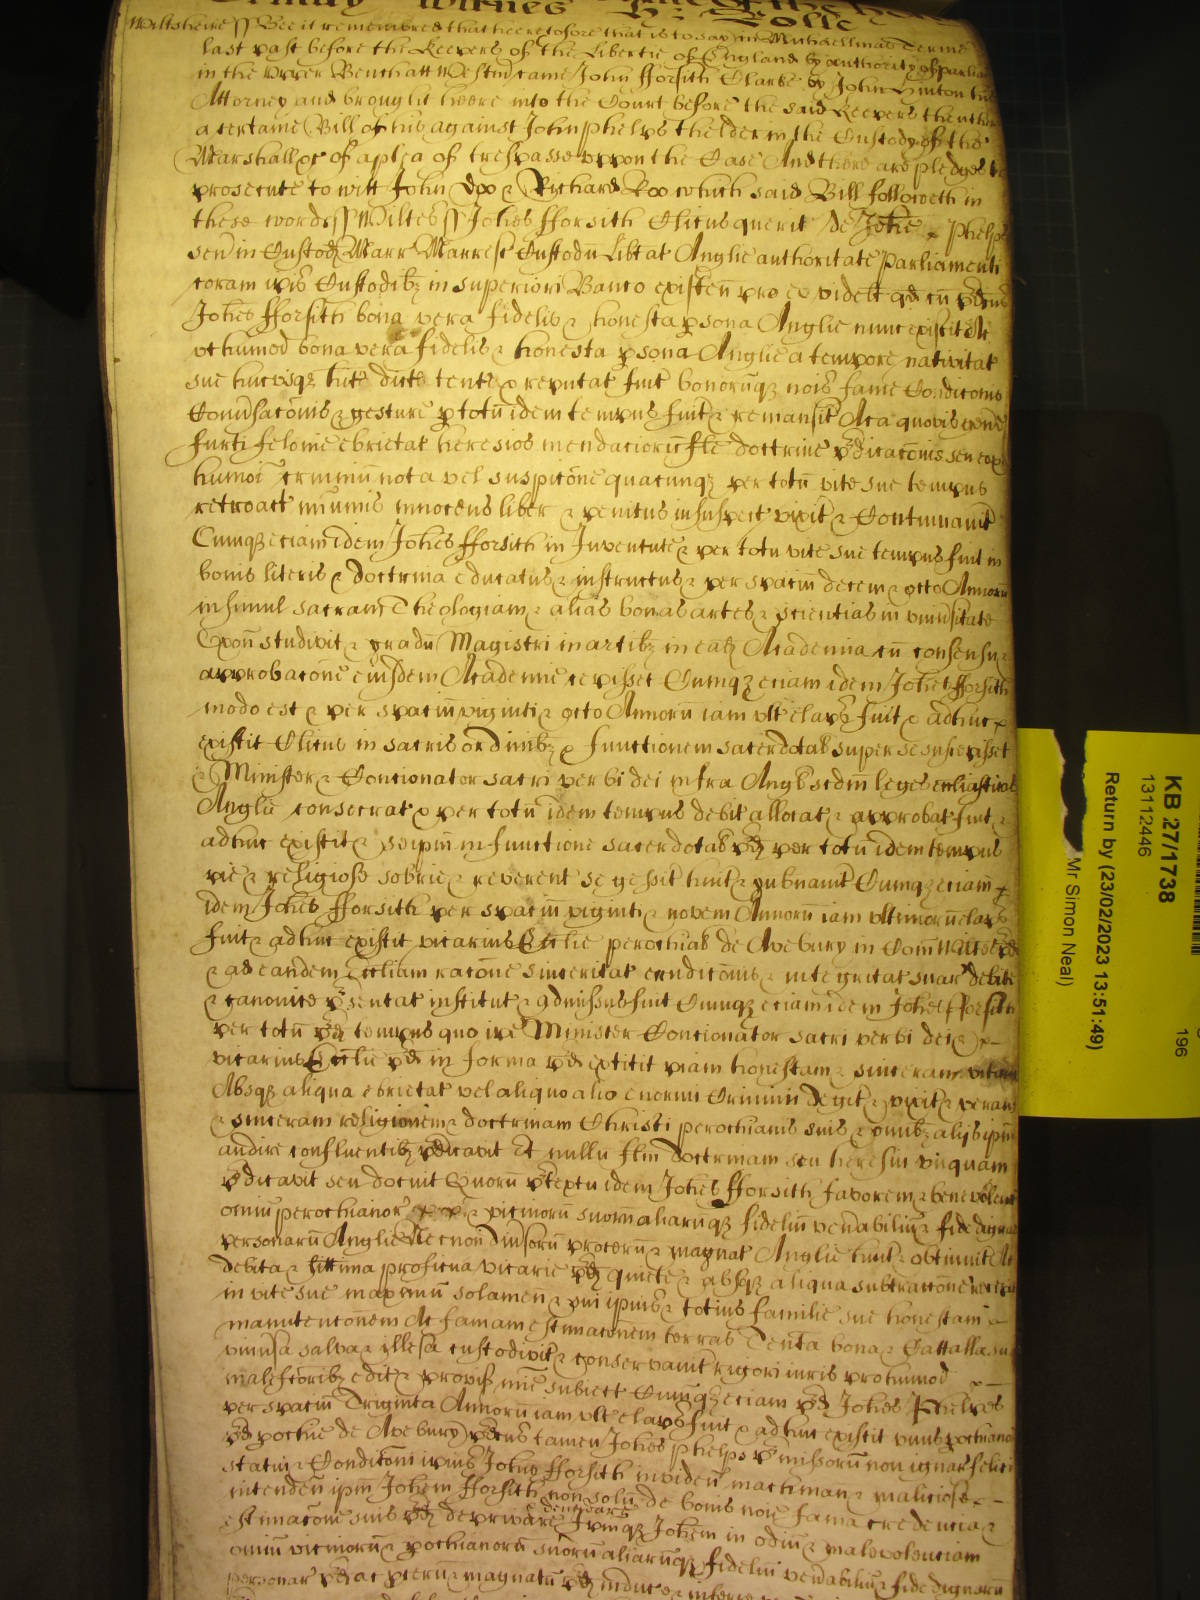 Wiltsheire ss Bee it remembred that heeretofore that is to say in Michaellmas Terme
last past before the Keepers of the Libertie of England by authority of parliam
in the upper Bench att Westm came John fforsith Clarke by John Linton his
Attorney and brought heere into the Court before the said Keepers then there
a certaine Bill of his against John phelps thelder in the Custody of the
Marshall &c of a plea of trespasse uppon the Case And there are pledges to
prosecute to witt John Doo & Richard Roo which said Bill followeth in
these words ss Wiltes ss Johes fforsith Clicus querit de Johe phelps
sen in Custod Marr Marresc Custodu Libtat Anglie authoritate Parliamenti
coram ipis Custodibz in superiori Banco existen pro eo videlt qd cu pdcus
Johes fforsith bona vera fidelis & honesta psona Anglie nunc existit Ac
ut humod bona vera fidelis & honesta psona Anglie a tempore nativitat
sue hucusqz hite dicte tente & reputat fuit bonoruqz nois fame Condiconis
Conversaconis & gesture p totu idem tempus fuit & remansit Ac a quovis gene
furti felonie ebrietat heresios mendacioru fle doctrine pdicaconis seu
humoi criminu nota vel suspicone quacunqz per totu vite sue tempus
retroact inmunis innocens liber & penitus insuspect vixit & Continuavit
Cumqz eciam idem Johes fforsith in Juventute & per totu vite sue tempus fuit in
bonis literis & doctrina educatus & instructus & per spaciu decem & octo Annoru
insimul sacram Theologiam & alias bonas artes & scientias in universitate
Oxon studivit & gradu Magistri in artibz in ead Academia cu consensu &
approbacone eiusdem Academie cepisset Cumqz eciam idem Johes fforsith
modo est & per spaciu viginti & octo Annoru iam ult elaps fuit & adhuc
existit Clicus in sacris ordinibz & functionem sacerdotal super se suscepisset
& Minister & Concionator sacri verbi dei infra Angl scdm leges
Anglie consecrat & per totu idem tempus debit allocat & approbat fuit &
adhuc existit & seipm in functione sacerdotal pd per totu idem tempus
pie & religiose sobrie & reverent se gessit huit & gubnavit Cumqz eciam
idem Johes fforsith per spaciu viginti & novem Annoru iam ultimoru elaps
fuit & adhuc existit vicarius Ecclie perochial de Avebury in Com Wiltes pd
& ad eandem Eccliam racone sinceritat erudiconis & integritat suar debite
& canonice psentat institut & admissus fuit Cumqz eciam idem Johes fforsith
per totu pd tempus quo ipe Minister Concionator sacri verbi dei &
vicarius Ecclie pd in forma pd extitit piam honestam & sinceram vitam
Absqz aliqua ebrietat vel aliquo alio enormi Crimini degit & vixit & veram
& sinceram religionem & doctrinam Christi perochianis suis & omibz alijs ipm
audire confluentibz pdicavit Et nullu flm doctrinam seu heresiu unquam
pdicavit seu docuit Quoru ptextu idem Johes fforsith favorem & benevolent
omiu perochianor & vicinoru suoru aliaruqz fideliu venabiliu & fidedignar
personaru Anglie Necnon diversoru proceru & magnat Anglie huit & obtinuit Ac
debita & littima proficua vicarie pd quiete & absqz aliqua subtraccone
in vite sue maximu solamen & sui ipius & totius familie sue honestam
manutenconem Ac famam estimaconem terras Tenta bona & Cattalla sua
univsa salva & illesa custodivit & conservavit rigori iuris pro humod
malefcoribz edit & provis minime subiect Cumqz eciam pd Johes Phelpes
per spaciu Triginta Annoru iam ult elaps fuit & adhuc existit unus pochiano
pd pochie de Avebury pdcus tamen Johes phelps pmissoru non ignar felici
statui & Condiconi ipius Johis fforsith invidens machinan & maliciose
intenden ipm Johem fforsith non solu de bonis noie fama credencia &
estimacone suis pd deprivare ipumqz Johem in odiu & malevolenciam
omiu vicinoru & pochianoru suoru aliaruqz fideliu venabiliu & fidedignaru
personar pd ac proceru & magnatu pd inducere & inferre
KB 27/1738
13112446
Return by (23/02/2023 13:51:49)
Mr Simon Neal)
196